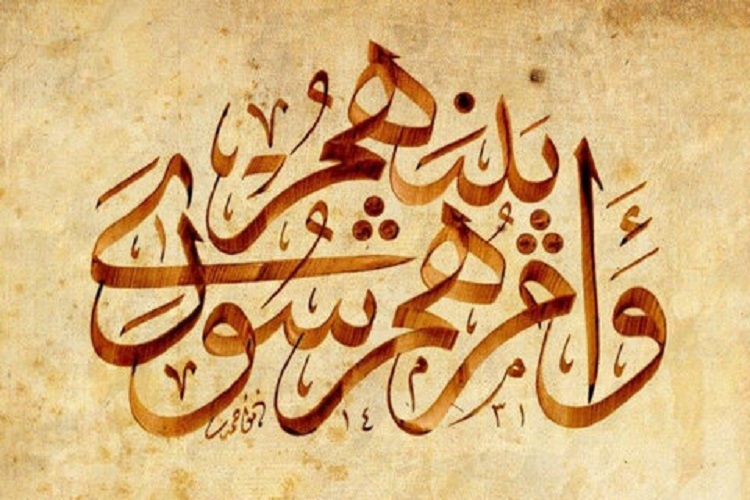 وَأَمرُهُم شُورى بَينَهُم
١٤٣١